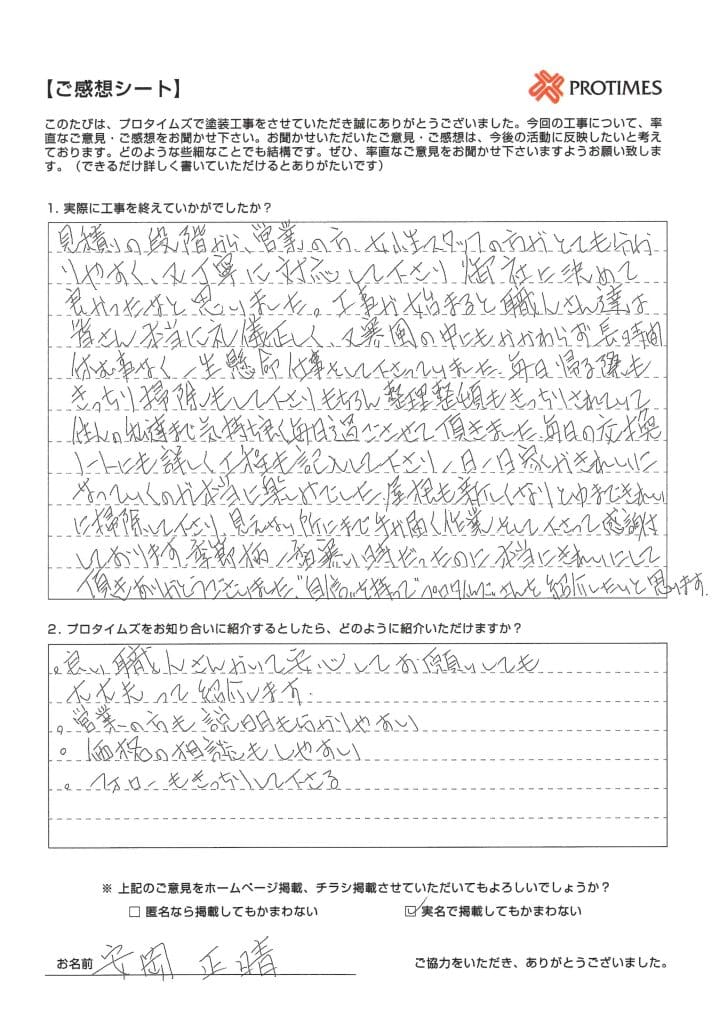 【ご感想シート】
PROTIMES
このたびは、プロタイムズで塗装工事をさせていただき誠にありがとうございました。今回の工事について、率
直なご意見・ご感想をお聞かせ下さい。お聞かせいただいたご意見・ご感想は、今後の活動に反映したいと考え
ております。どのような些細なことでも結構です。ぜひ、率直なご意見をお聞かせ下さいますようお願い致しま
す。（できるだけ詳しく書いていただけるとありがたいです）
1. 実際に工事を終えていかがでしたか？
見積りの段階から、営業の方、女性スタッフの方がとても分か
りやすく、又丁寧に対応して下さり御社に決めて
良かったなと思いました。工事が始まると職人さん達は
皆さん本当に礼儀正しく、又暴風の中にもかかわらず長時間
休む事なく一生懸命仕事をして下さっていました。毎日帰る際も
きっちり掃除もして下さりもちろん整理整頓もきっちりされていて
住人の私達まで気持ち良く毎日過ごさせて頂きました。毎日の交換
ノートにも詳しく工程を記入して下さり一日一日家がきれいに
なっていくのが本当に楽しみでした。屋根も新しくなりとゆまできれい
に掃除して下さり、見えない所にまで手が届く作業をして下さって感謝
しております。季節柄一番寒い時だったのに本当にきれいにして
頂きありがとうございました。"自信"を持って"プロタイムズ"さんを紹介したいと思います。
2. プロタイムズをお知り合いに紹介するとしたら、どのように紹介いただけますか？
。良い職人さんがいて安心してお願いしても
大丈夫って紹介します。
。営業の方も説明も分かりやすい
。価格の相談もしやすい
。フォローもきっちりして下さる
※ 上記のご意見をホームページ掲載、チラシ掲載させていただいてもよろしいでしょうか？
□ 匿名なら掲載してもかまわない ☑ 実名で掲載してもかまわない
お名前 安岡 正晴 ご協力をいただき、ありがとうございました。